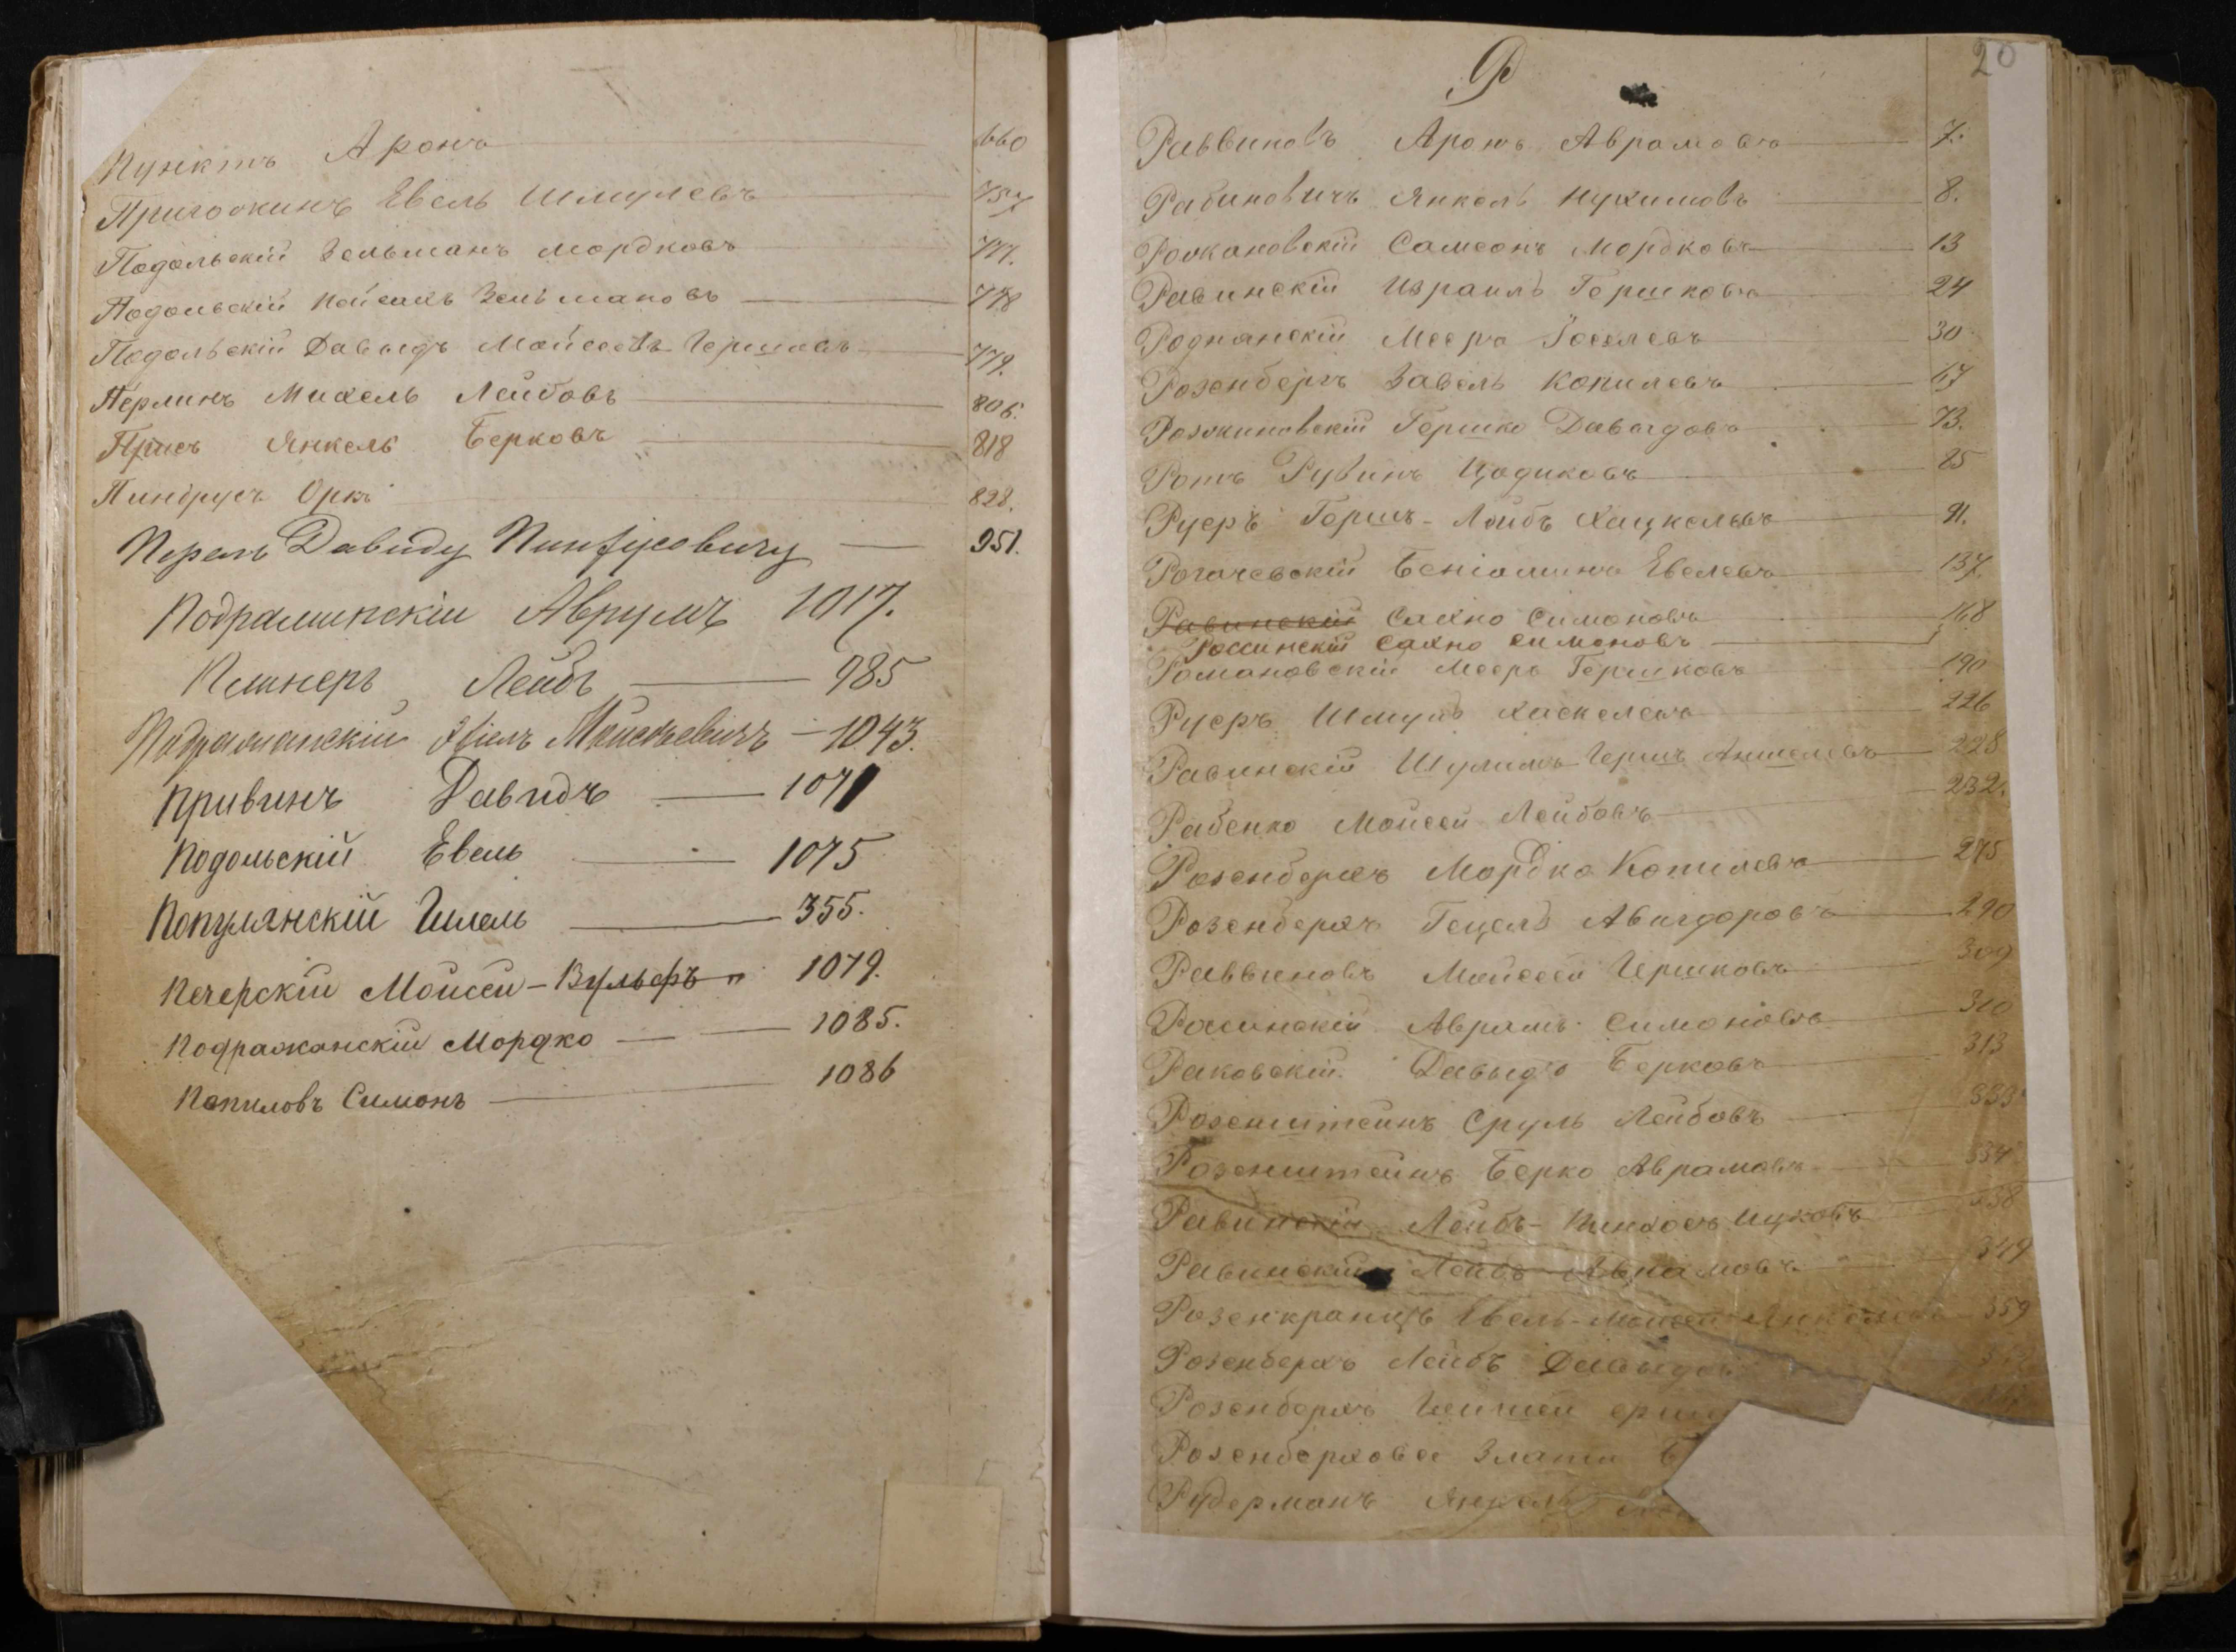 Пунктъ Аронъ 660
Пригоокинъ Евель Шмулевъ 757
Подольскій Зельманъ Мордковъ 777.
Подольскій Пейсахъ Зельмановъ 778
Подольскій Давыдъ Мойсеевъ Гершовъ 779.
Перлинъ Михель Лейбовъ 806.
Присъ Янкель Берковъ 818
Пиндрусъ Орк 828.
Перель Давиду Пинхусовичу 951.
Подраминскій Аврумъ 1017.
Пешнеръ Лейбъ 985
Подрамянскій 1043.
Привинъ Давидъ 1071
Подольскій Евель 1075
Популянскій Шлель 355.
Печерскій Моисей-Вульфъ 1079.
Подражанскій Мордко 1085.
Попиловъ Симонъ 1086
Р 20
Раввиновъ Аронъ Аврамовъ 7.
Рабиновичъ Янкель Нухимовъ 8.
Самсонъ Мордковъ 13
Равинскій Израиль Гершковъ 24
Роднянскій Мееръ Іоселевъ 30
Розенбергъ Завель Копилевъ 67
Гершко Давыдовъ 73.
Ротъ Рувинъ Цодиковъ 85
Руеръ Гершъ-Лейбъ Хацкелевъ 91.
Рогачевскій Беніоминъ Евелевъ 137.
Равинскій Сахно Симоновъ 168
Россинскій Сахно Симоновъ
Романовскій Мееръ Гершковъ 190
Руеръ Шмуль Хаскелевъ 226
Равинскій Шулимъ Гершъ Аншелевъ 228
Рабенко Мойсей Лейбовъ 232.
Розенберхъ Мордко Копилевъ 275
Розенберхъ Гецель Авигдоровъ 290
Раввиновъ Мойсей Гершковъ 309
Россинскій Аврамъ Симоновъ 310
Раковскій Давыдъ Берковъ 313
Розенштейнъ Сруль Лейбовъ 333
Розенштейнъ Берко Аврамовъ 334
Равинскій Лейбъ-Пинхосъ Ицковъ 338
Равинскій Лейбъ Аврамовъ 349
Розенкранцъ Евель-Мойсей 359
Розенберхъ Лейбъ Давыдов
Розенберхъ
Розенберхова Злата Б
Рудерманъ Янкель